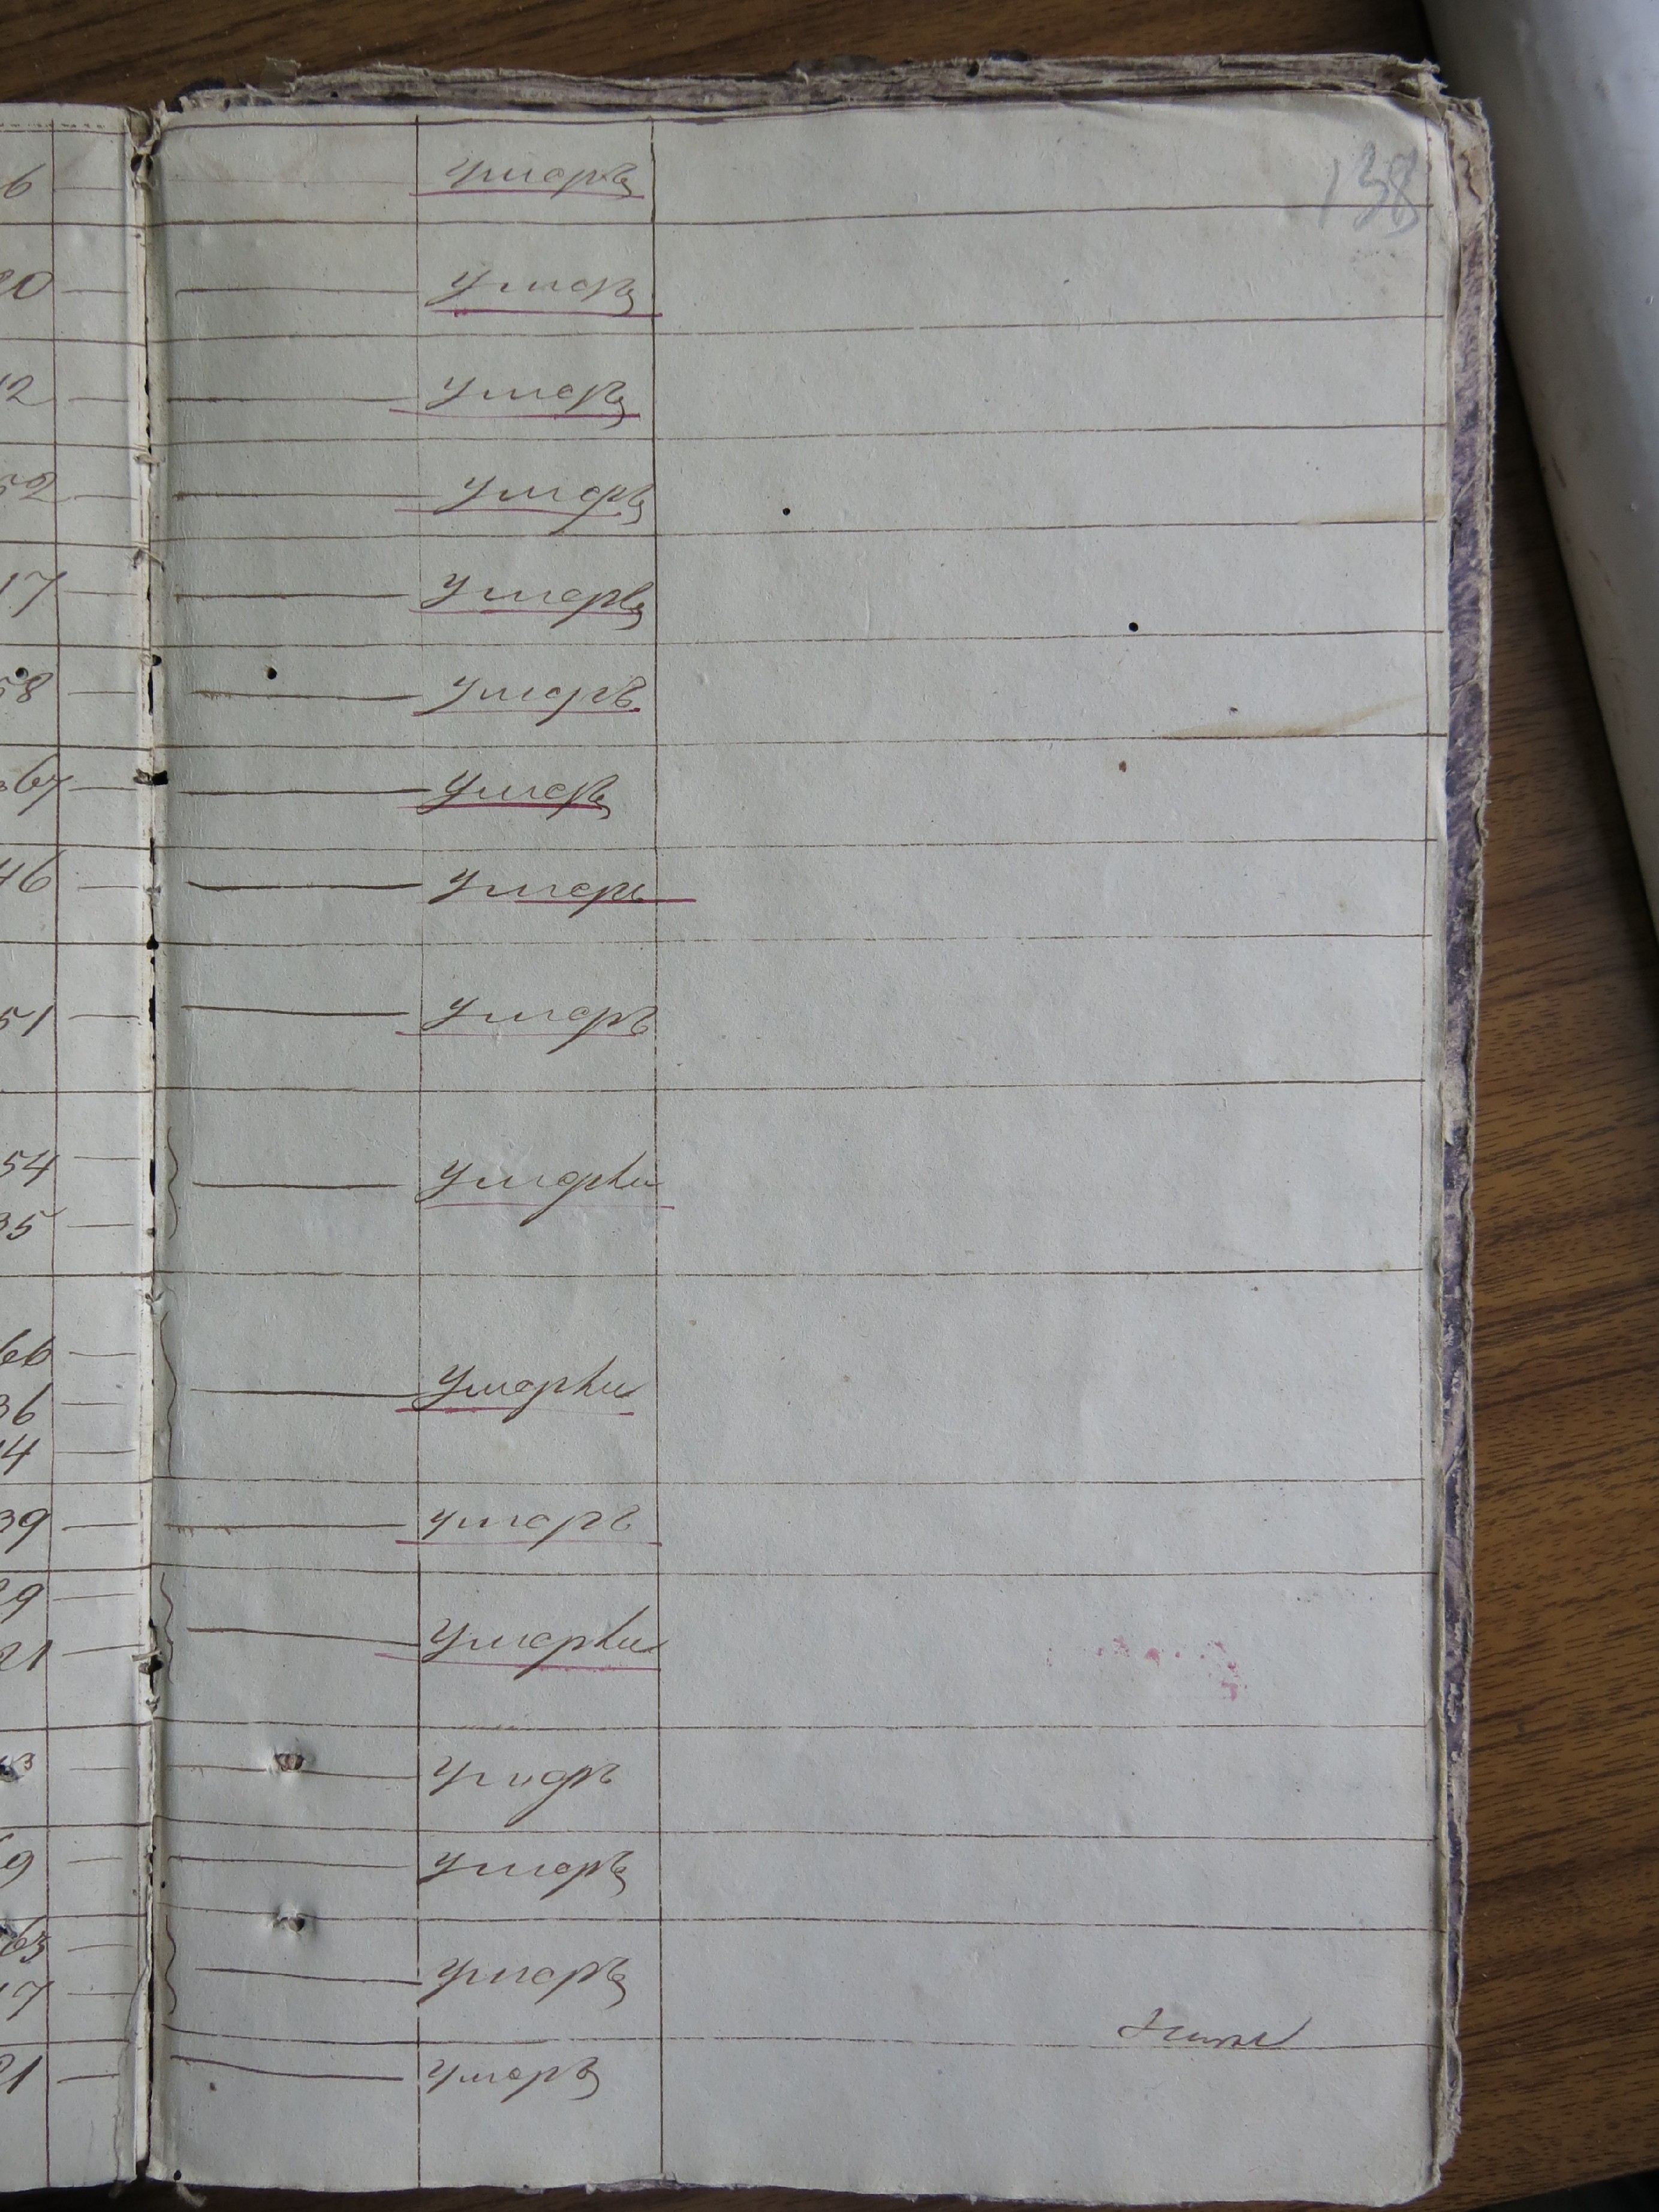 138
6 — умеръ
20 — — умеръ
12 — — умеръ
52 — — умеръ
17 — — умеръ
58 — — умеръ
67 — — умеръ
46 — — умеръ
51 — — умеръ
54 —
35 — — умерли
66 —
36 — — умерли
14 —
39 — — умеръ
29 —
21 — — умерли
3 — — умеръ
9 — — умеръ
63 —
17 — — умеръ
21 — — умеръ